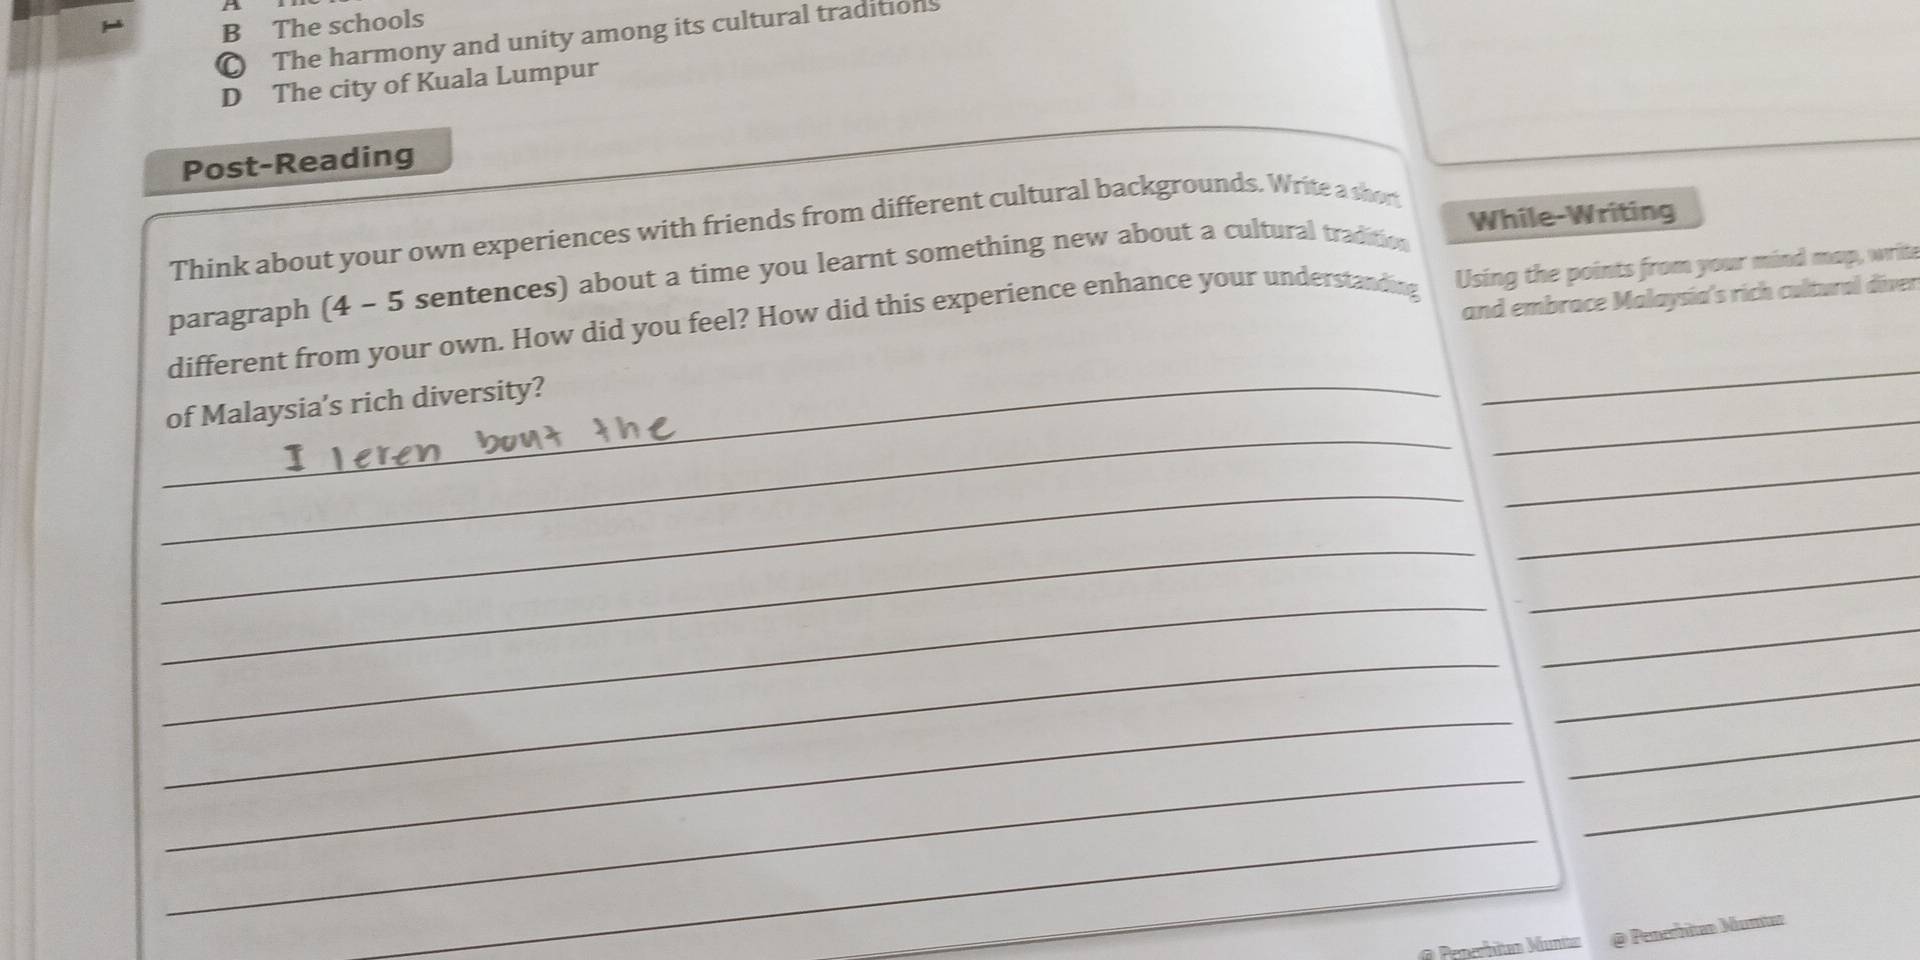 1
B The schools
C The harmony and unity among its cultural traditions
D The city of Kuala Lumpur
Post-Reading
Think about your own experiences with friends from different cultural backgrounds. Write a short
paragraph (4 – 5 sentences) about a time you learnt something new about a cultural tradition
different from your own. How did you feel? How did this experience enhance your understanding
of Malaysia's rich diversity?
I leren bout the
While-Writing
Using the points from your mind map, write
and embrace Malaysia's rich cultural diver
@ Penerbitan Mumtaz
@ Penerbitan Mumtaz